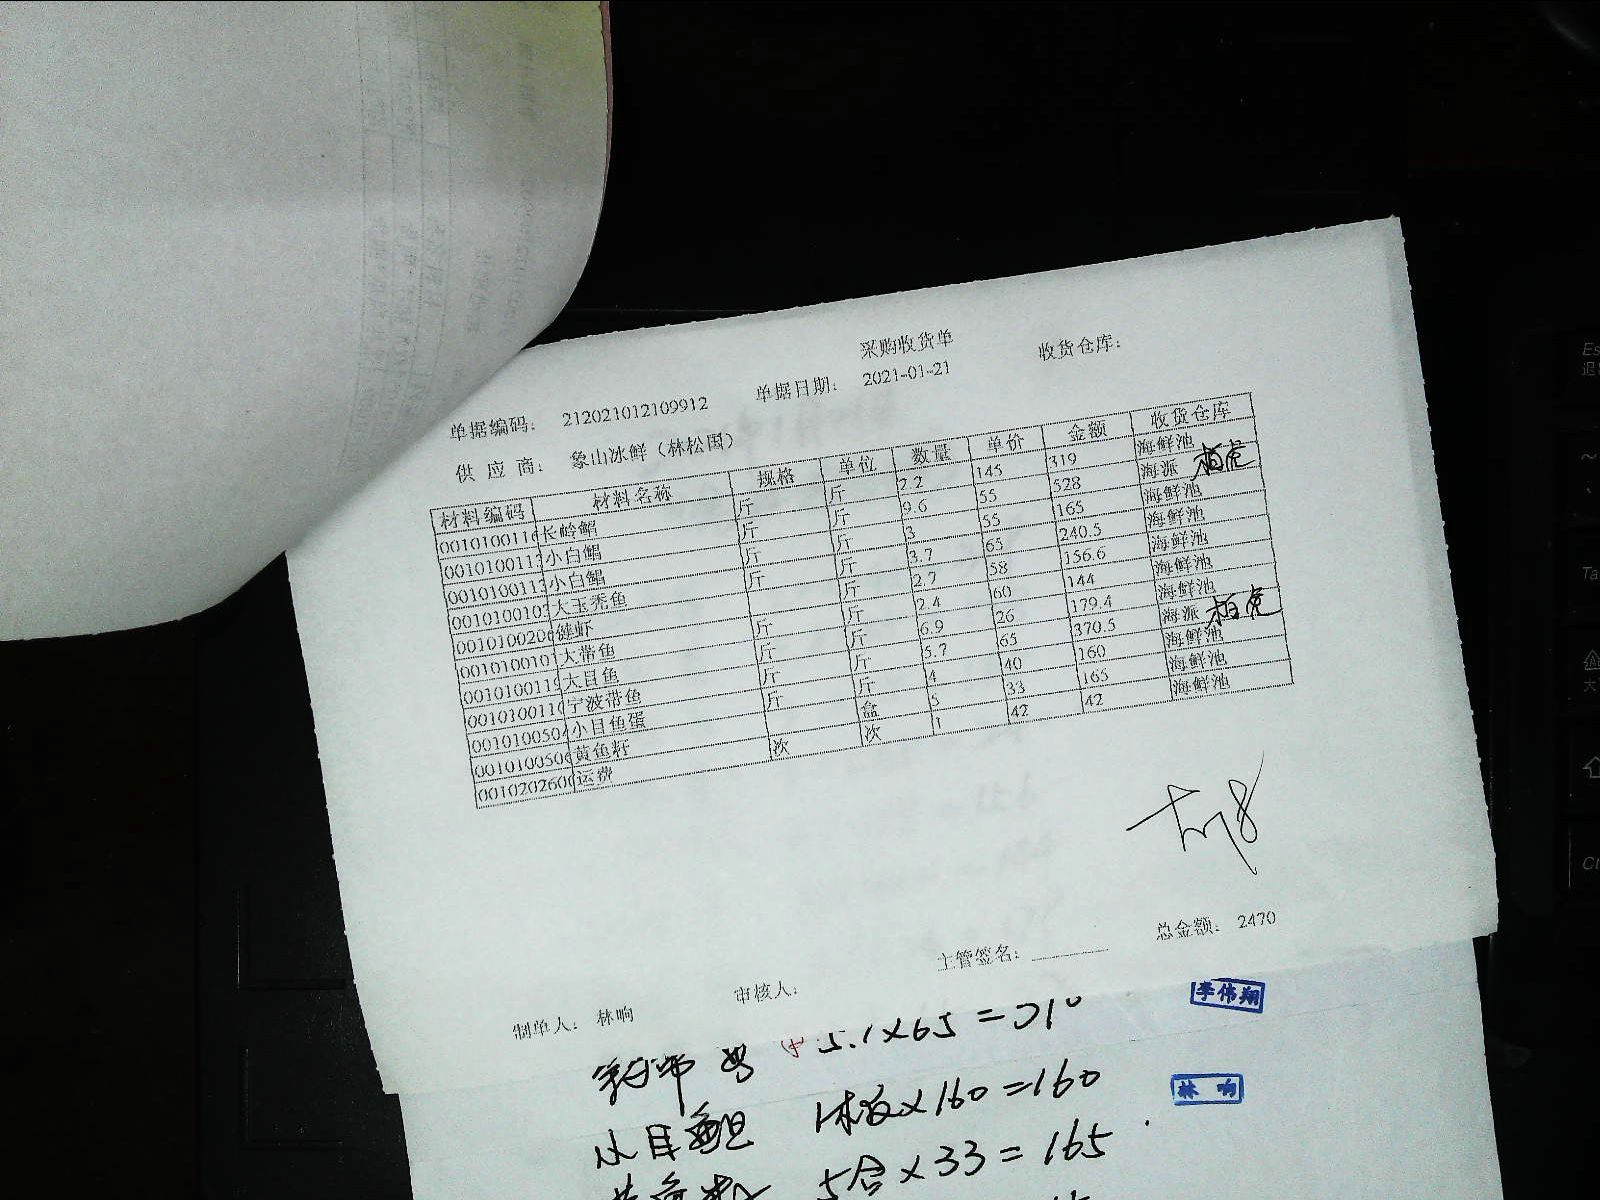 采购收货单
收货仓库：
单据编码： 212021012109912 单据日期： 2021-01-21
供 应 商： 象山冰鲜（林松国）
材料编码 材料名称 规格 单位 数量 单价 金额 收货仓库
0010100116 长岭鲳 斤 斤 2.2 145 319 海鲜池
0010100113 小白鲳 斤 斤 9.6 55 528 海派
0010100113 小白鲳 斤 斤 3 55 165 海鲜池
0010100105 大玉秃鱼 斤 斤 3.7 65 240.5 海鲜池
001010020 虾 斤 2.7 58 156.6 海鲜池
001010010 大带鱼 斤 斤 2.4 60 144 海鲜池
001010011 大目鱼 斤 斤 6.9 26 179.4 海鲜池
001010011 宁波带鱼 斤 斤 5.7 65 370.5 海派
001010050 小目鱼蛋 斤 斤 4 40 160 海鲜池
001010050 黄鱼籽 盒 5 33 165 海鲜池
001020260 运费 次 次 1 42 42 海鲜池
主管签名： 总金额： 2470
制单人： 林响 审核人：
李伟翔
5.1×65=
林响
小目 ×160=160
5合×33=165